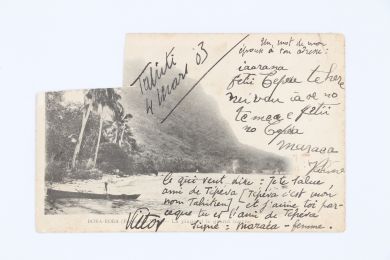 Tahiti
4 mars 03
Un mot de mon
épouse à ton adresse :
iaorana
fetii Tepeva te here
nei vau ia oe no
te mea e fetii
no Tepeva
Maraea
Vahine
Ce qui veut dire : je te salue
ami de Tépéva [Tépéva c'est mon
nom Tahitien], et j'aime toi par-
ceque tu es l'ami de Tépéva
Signé : Maraea - femme.
Victor
BORA-BORA